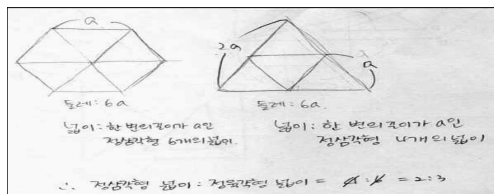 a
2a
a
둘레: 6a
둘레: 6a.
넓이: 한 변의 길이가 a인
정삼각형 6개의 넓이.
넓이: 한 변의 길이가 a인
정삼각형 4개의 넓이
∴ 정삼각형 넓이 : 정육각형 넓이 = 4 : 6 = 2:3